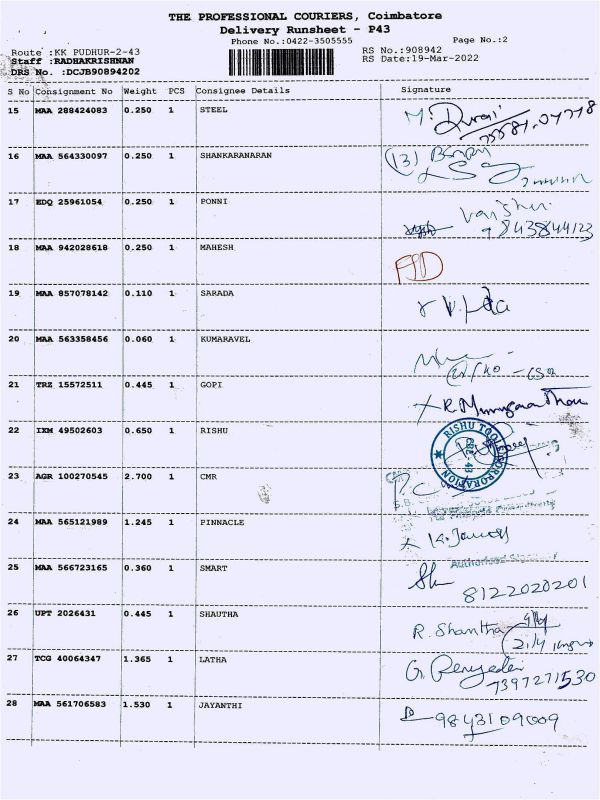 THE PROFESSIONAL COURIERS, Coimbatore
Delivery Runsheet - P43
Phone No.:0422-3505555 Page No.:2
Route :KK PUDHUR-2-43 RS No.:908942
Staff :RADHAKRISHNAN RS Date:19-Mar-2022
DRS No. :DCJB90894202
S No Consignment No Weight PCS Consignee Details Signature
15 MAA 288424083 0.250 1 STEEL
16 MAA 564330097 0.250 1 SHANKARANARAN
17 EDQ 25961054 0.250 1 PONNI
9843844123
18 MAA 942028618 0.250 1 MAHESH
19 MAA 857078142 0.110 1 SARADA
20 MAA 563358456 0.060 1 KUMARAVEL
21 TRZ 15572511 0.445 1 GOPI
22 IXM 49502603 0.650 1 RISHU
RISHU TOOLS CORPORATION
CBE. 43
23 AGR 100270545 2.700 1 CMR
24 MAA 565121989 1.245 1 PINNACLE
Authorised
25 MAA 566723165 0.360 1 SMART
8122020201
26 UPT 2026431 0.445 1 SHAUTHA R. Shantha
27 TCG 40064347 1.365 1 LATHA
7397271530
28 MAA 561706583 1.530 1 JAYANTHI 9843109009